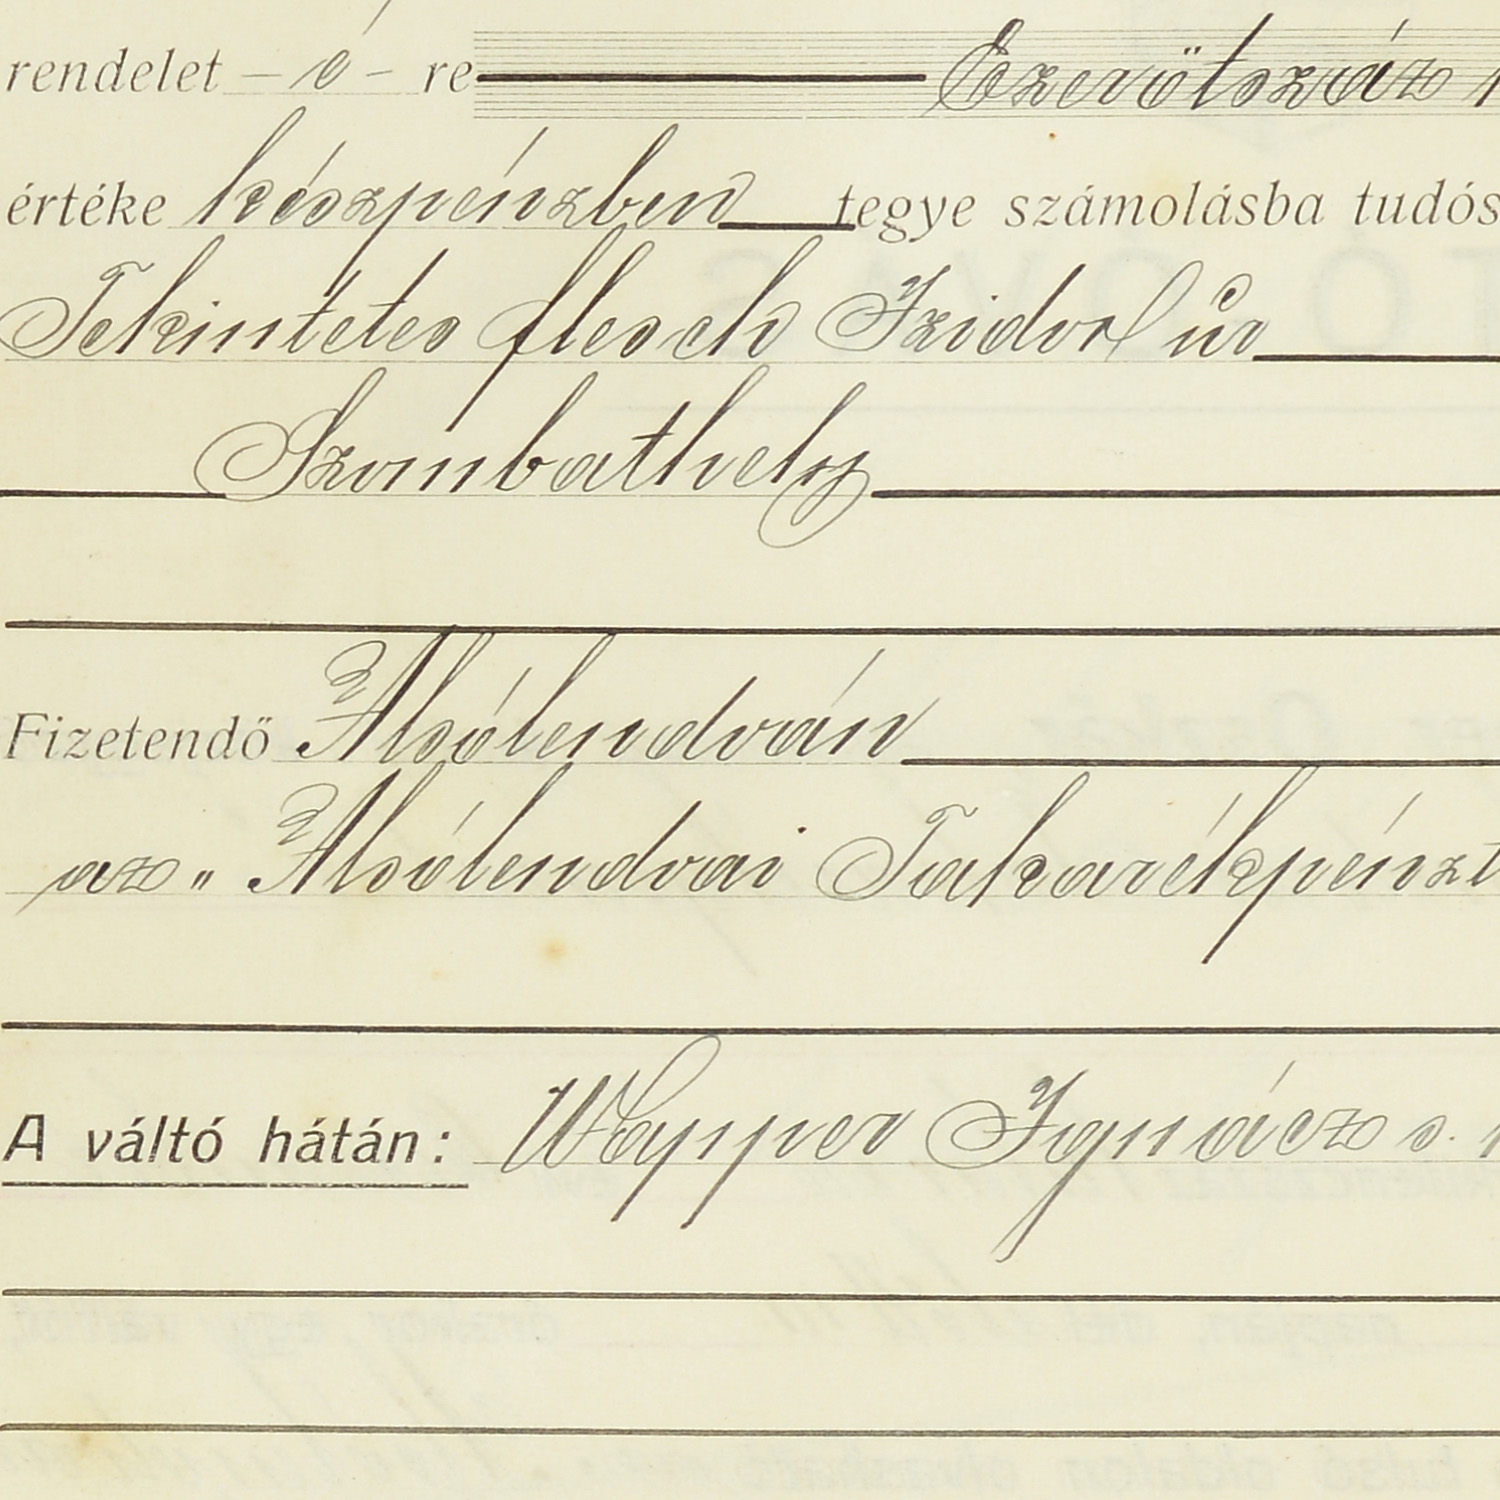 rendelet – ó – re Ezerötszáz
értéke készpénzben tegye számolásba tudós
Tekintetes flesch Izidor úr
Szombathely
Fizetendő Alsólendván
az " Alsólendvai Takarékpénzt
A váltó hátán: Wapper Ignácz s.